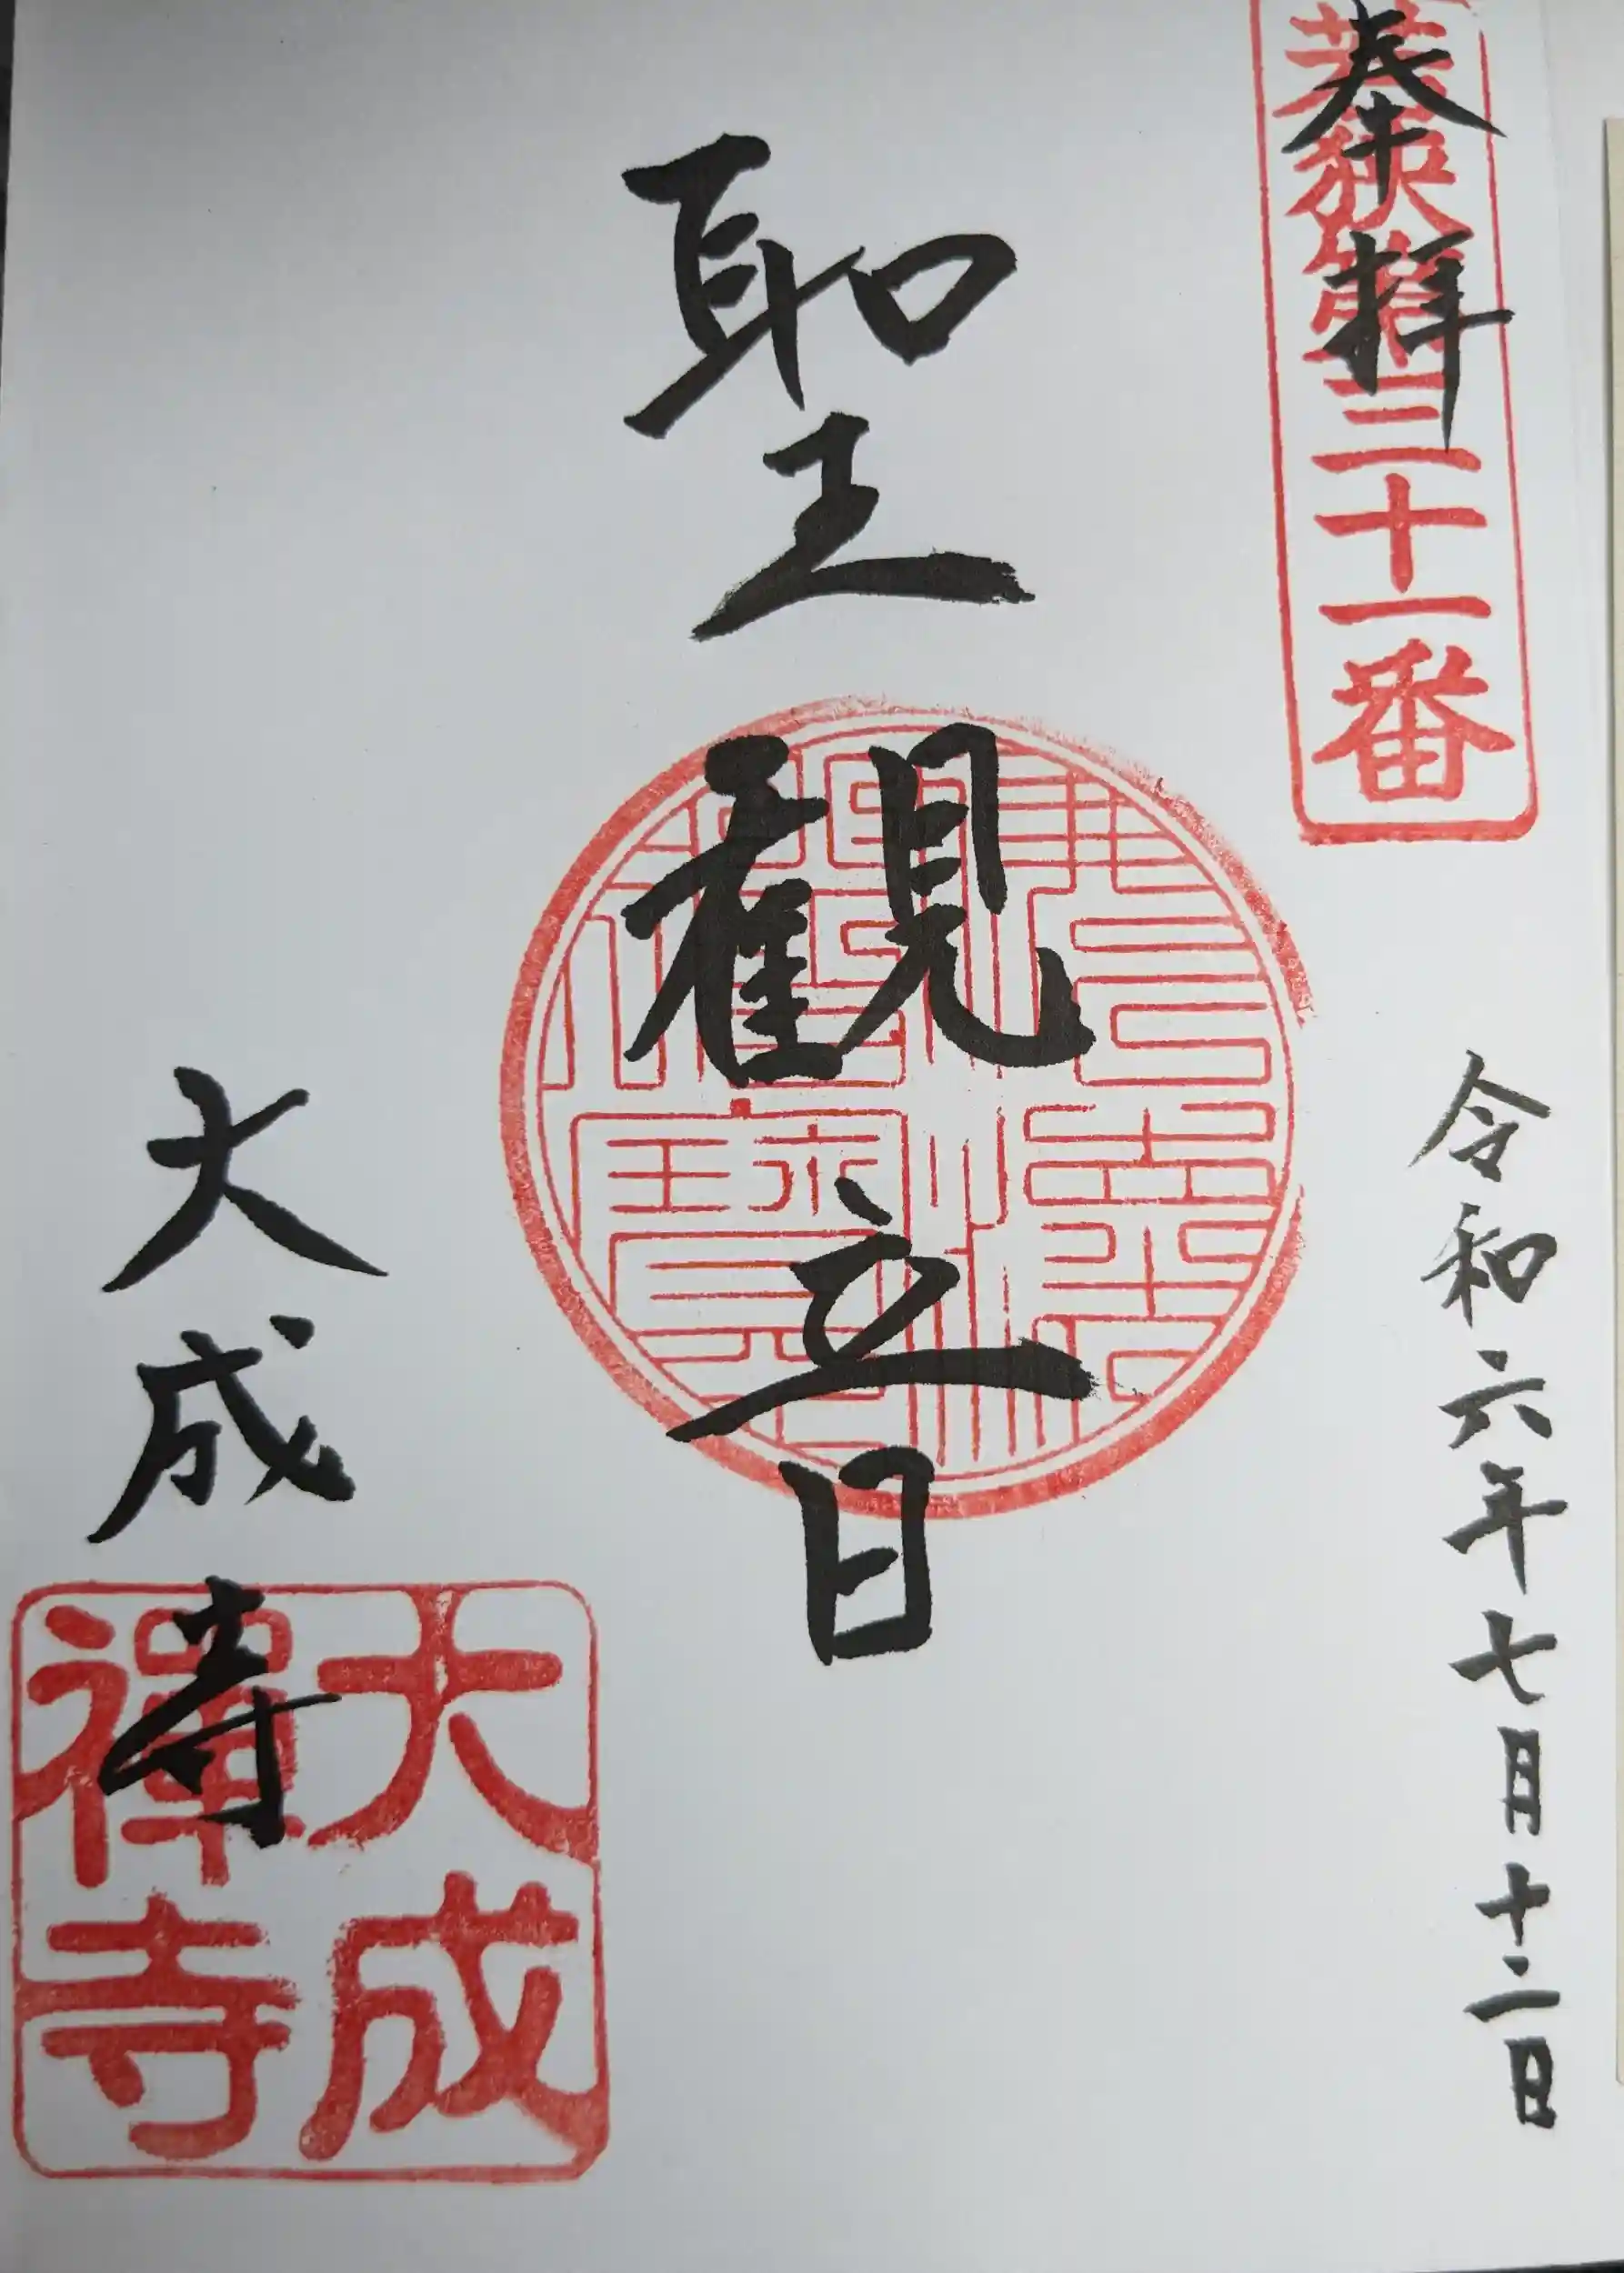 奉拝
若狭第三十一番
令和六年七月十二日
聖観音
大成寺
大成
禪寺